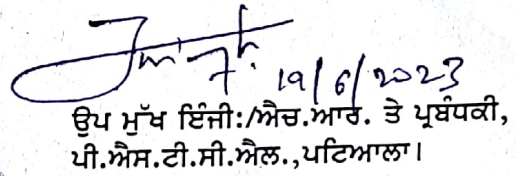 19/6/2023
ਉਪ ਮੁੱਖ ਇੰਜੀ:/ਐਚ.ਆਰ. ਤੇ ਪ੍ਰਬੰਧਕੀ,
ਪੀ.ਐਸ.ਟੀ.ਸੀ.ਐਲ.,ਪਟਿਆਲਾ।